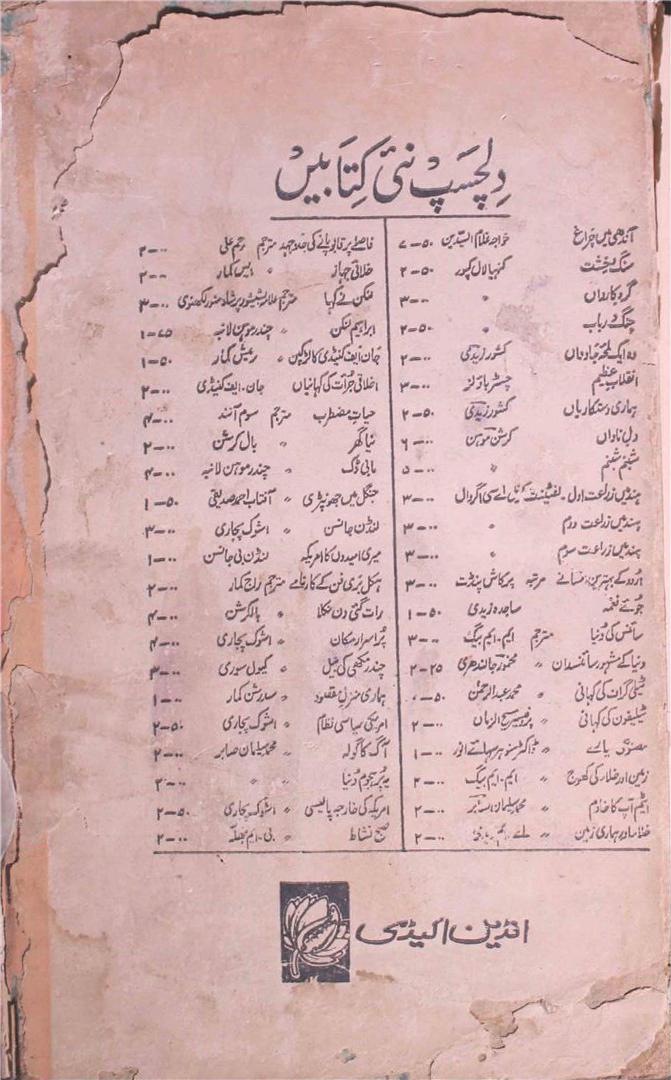 دلچسپ نئی کتابیں
آندھی میں چراغ خواجہ غلام السیدین ۵۰-۷
سنگ و خشت کنہیا لال کپور ۵۰-۲
گردِ کارواں " ۰۰-۳
چنگ و رباب " ۵۰-۲
وہ ایک لمحہ جاوداں کشور زیدی ۰۰-۲
انقلابِ عظیم چسٹر باؤلز ۰۰-۲
ہماری دستکاریاں کشور زیدی ۵۰-۲
دلِ ناداں کرشن موہن ۰۰-۶
شبنم شبنم " ۰۰-۵
ہند میں زراعت اول۔ لفٹیننٹ کرنل اے سی اگروال ۰۰-۳
ہند میں زراعت دوم " ۰۰-۳
ہند میں زراعت سوم " ۰۰-۳
اردو کے بہترین افسانے مرتبہ پرکاش پنڈت ۰۰-۳
جوئے نغمہ ساجدہ زیدی ۵۰-۱
سائنس کی دنیا مترجم ایم۔ ایم بیگ ۰۰-۳
دنیا کے مشہور سائنسدان " مخمور جالندھری ۲۵-۲
ٹیلی گراف کی کہانی " محمد عبدالرحمٰن ۵۰-۰
ٹیلیفون کی کہانی " پروفیسر مسیح الزماں ۰۰-۲
مصنوعی " ڈاکٹر منوہر سہائے انور ۰۰-۱
زمین اور خلا کی کھوج " ایم۔ ایم بیگ ۰۰-۲
ایٹم آپ کا خادم " محمد سلیمان صابر ۰۰-۲
خلا اور ہماری زمین " اے ۰۰-۲
فاصلے پر قابو پانے کی جدوجہد مترجم رحم علی ۰۰-۲
خلائی جہاز " ایس کمار ۰۰-۲
لنکن نے کہا مترجم علامہ بشیشور پرشاد منور لکھنوی ۰۰-۳
ابراہم لنکن " چندر موہن لانبہ ۷۵-۱
جان ایف کنیڈی کا لڑکپن " رمیش کمار ۵۰-۱
اخلاقی جرأت کی کہانیاں جان۔ ایف کنیڈی ۰۰-۲
حیاتِ مضطرب مترجم سوم آنند ۰۰-۴
نیا گھر " بال کرشن ۰۰-۲
مابی ڈک " چندر موہن لانبہ ۰۰-۴
جنگل میں جھونپڑی " آفتاب احمد صدیقی ۵۰-۱
لنڈن جانسن " اشوک پجاری ۰۰-۳
میری امیدوں کا امریکہ لنڈن بی جانسن ۰۰-۱
ہکل بری فن کے کارنامے مترجم راج کمار ۰۰-۲
رات گئی دن نکلا " بالکرشن ۰۰-۴
پُراسرار مکان " اشوک پجاری ۰۰-۴
چندر مکھی کی بیل " کیول سوری ۰۰-۳
ہماری منزلِ مقصود " سدرشن کمار ۰۰-۱
امریکی سیاسی نظام " اشوک پجاری ۵۰-۲
آگ کا گولہ " محمد سلیمان صابر ۰۰-۲
پُر ہجوم دنیا " " ۰۰-۳
امریکہ کی خارجہ پالیسی " اشوک پجاری ۵۰-۲
صبحِ نشاط " بی۔ ایم بھلّہ ۰۰-۲
انڈین اکیڈمی